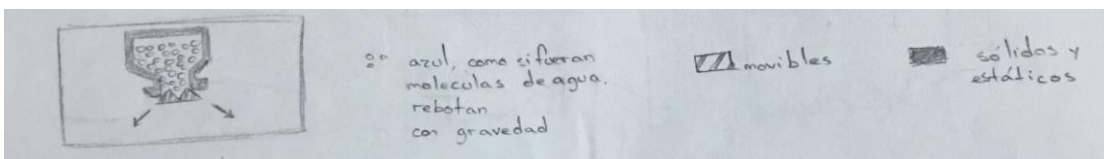 azul, como si fueran
moleculas de agua.
rebotan
con gravedad
movibles
sólidos y
estáticos